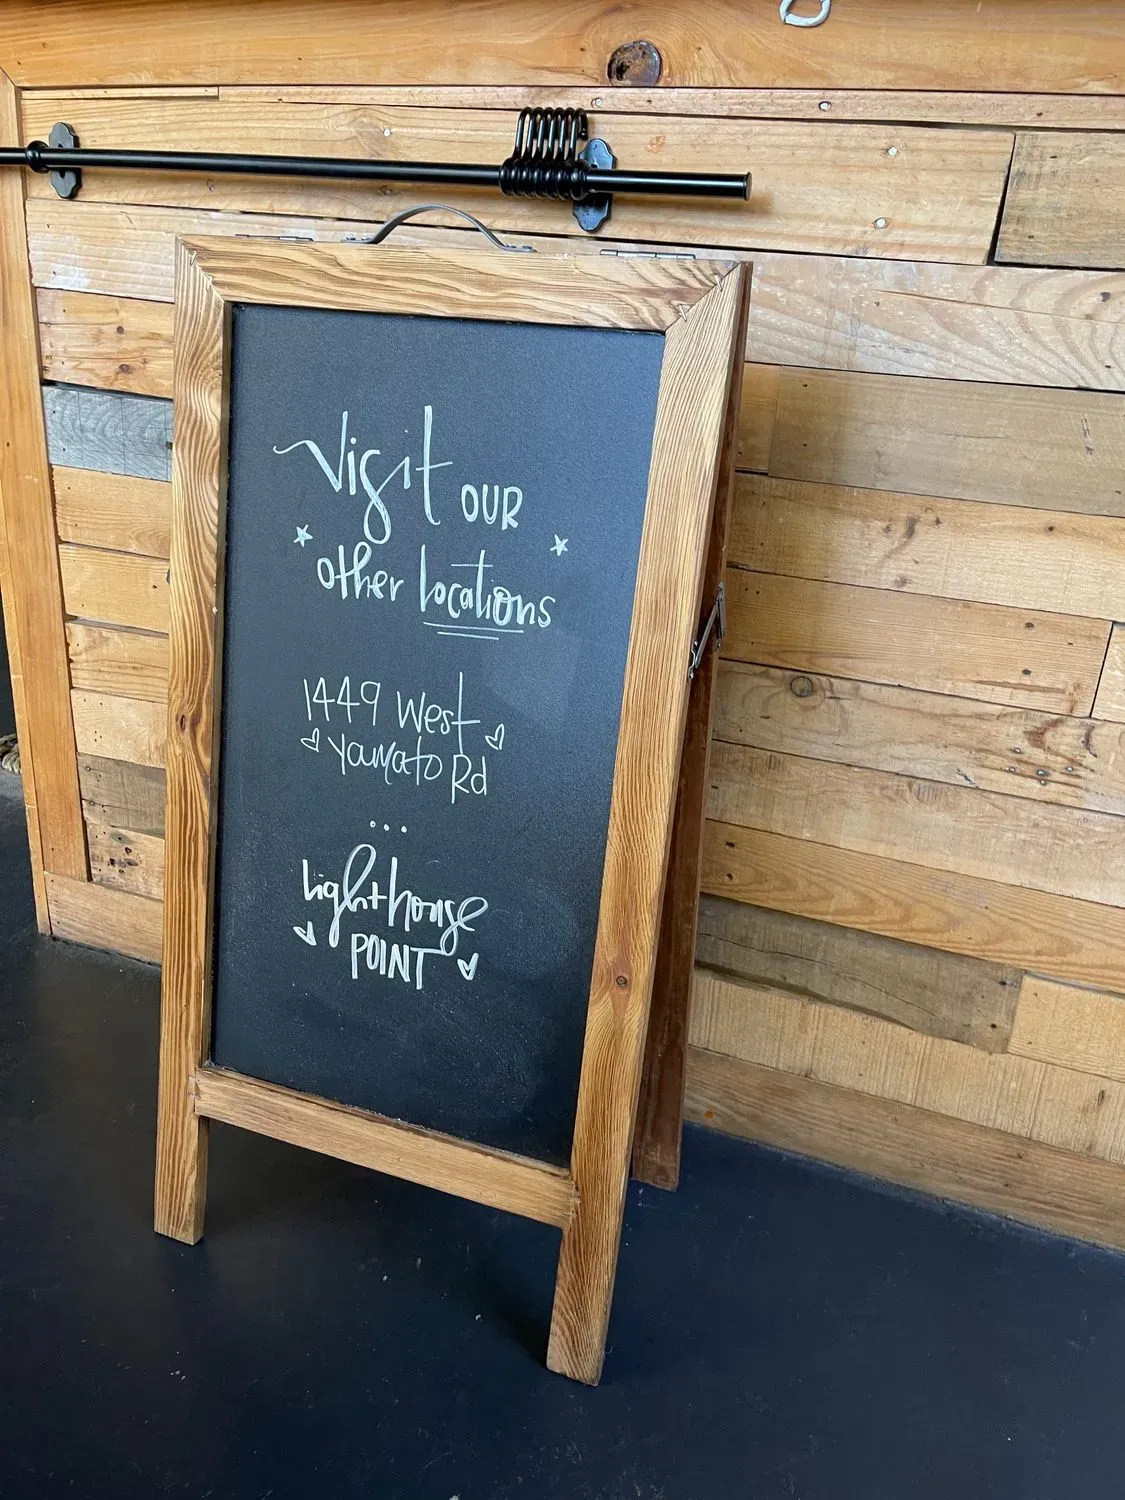 Visit OUR
other locations
1449 West
Yamato Rd
...
Lighthouse
POINT